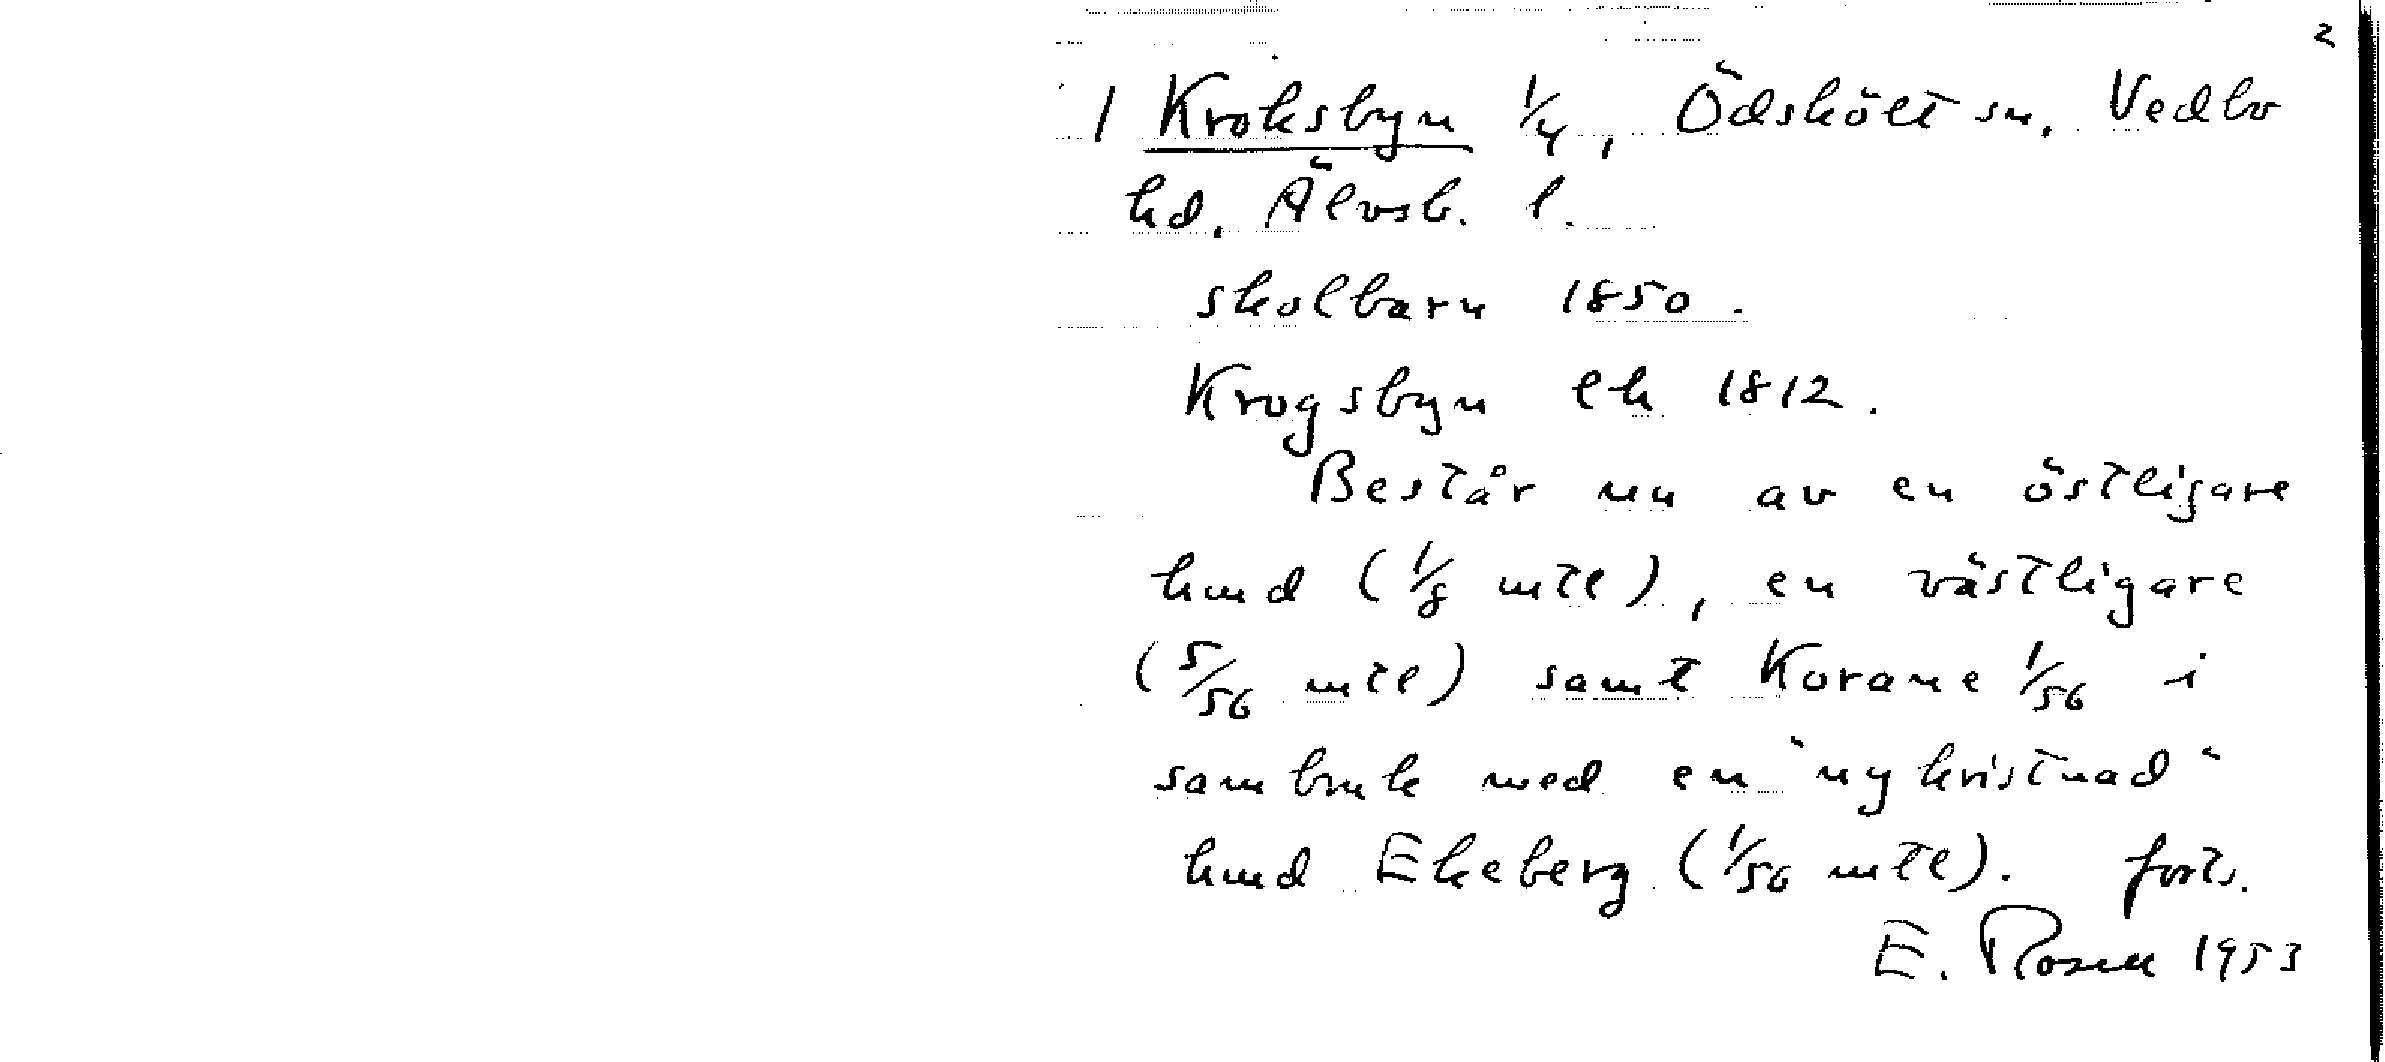 2
1 Kroksbyn 1/4, Ödskölt sn, Vedbo
hd, Älvsb. l.
skolbarn 1850.
Krogsbyn ek 1812.
Består nu av en östligare
hmd (1/8 mtl), en västligare
(5/56 mtl) samt Korane 1/56 i
sambruk med en "nykristnad"
hmd Ekeberg (1/56 mtl). forts.
E. Rosell 1953